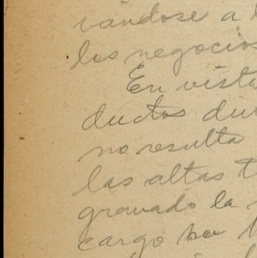 vándose a l
los negocios
En vista
ductos dur
no resulta
las altas t
gravado la
cargo ha